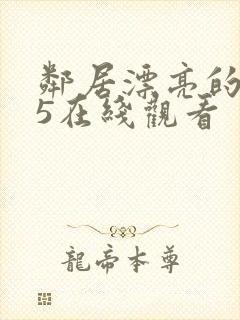 鄰居漂亮的
5在綫觀看
龍帝本尊